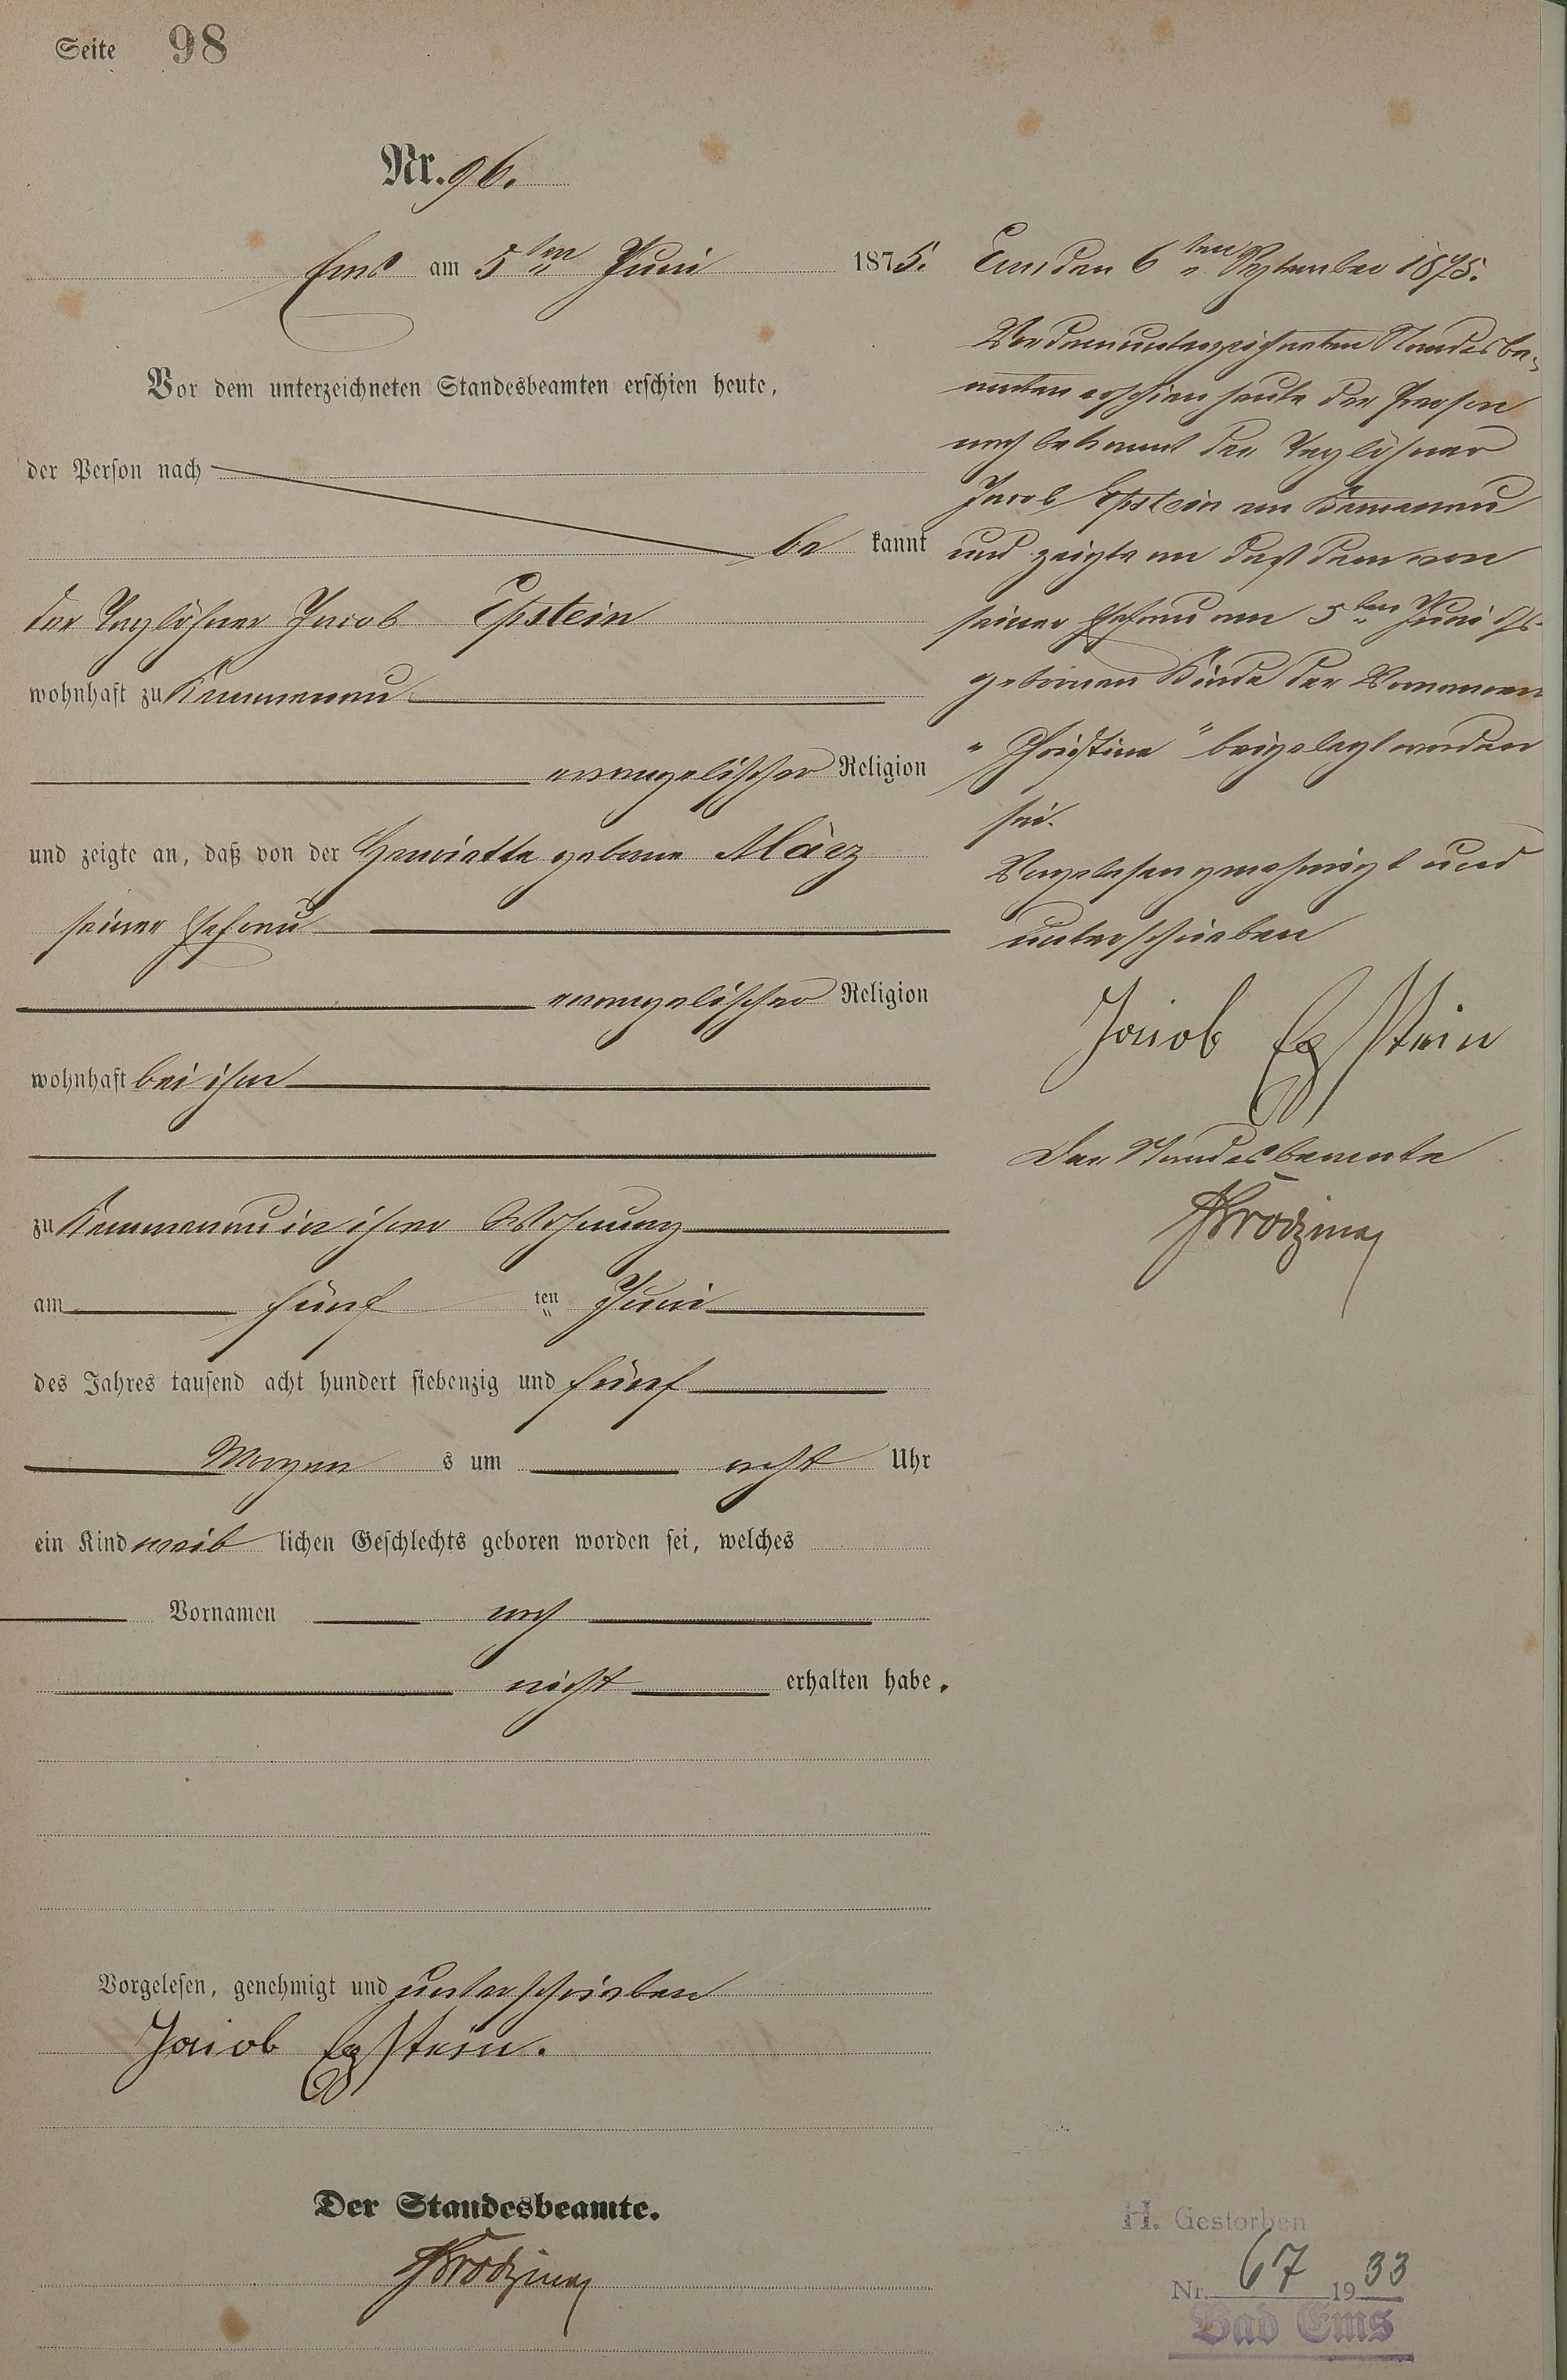 Seite 98
Nr. 96.
Ems am 5ten Juni 1875.
Vor dem unterzeichneten Standesbeamten erschien heute,
der Person nach
be kannt
der Taglöhner Jacob Epstein
wohnhaft zu Kemmenau
evangelischer Religion
und zeigte an, daß von der Henriette geborne März
seiner Ehefrau
evangelischer Religion
wohnhaft bei ihm
zu Kemmenau in ihrer Wohnung
am fünf ten Juni
des Jahres tausend acht hundert siebenzig und fünf
Morgen s um acht Uhr
ein Kind weib lichen Geschlechts geboren worden sei, welches
Vornamen noch
nicht erhalten habe.
Vorgelesen, genehmigt und unterschrieben
Jacob Epstein.
Der Standesbeamte.
Ems den 6ten September 1875.
Vor dem unterzeichneten Standesbe-
amten erschien heute der Person
nach bekannt der Taglöhner
Jacob Epstein von Kemenau
und zeigte an daß dem von
seiner Ehefrau am 5ten Juni
gebornen Kinde der Vornamen
"Christine" beigelegt worden
sei.
Vorgelesen genehmigt und
unterschrieben
Jacob Epstein
Der Standesbeamte
H. Gestorben
Nr. 67 1933
Bad Ems